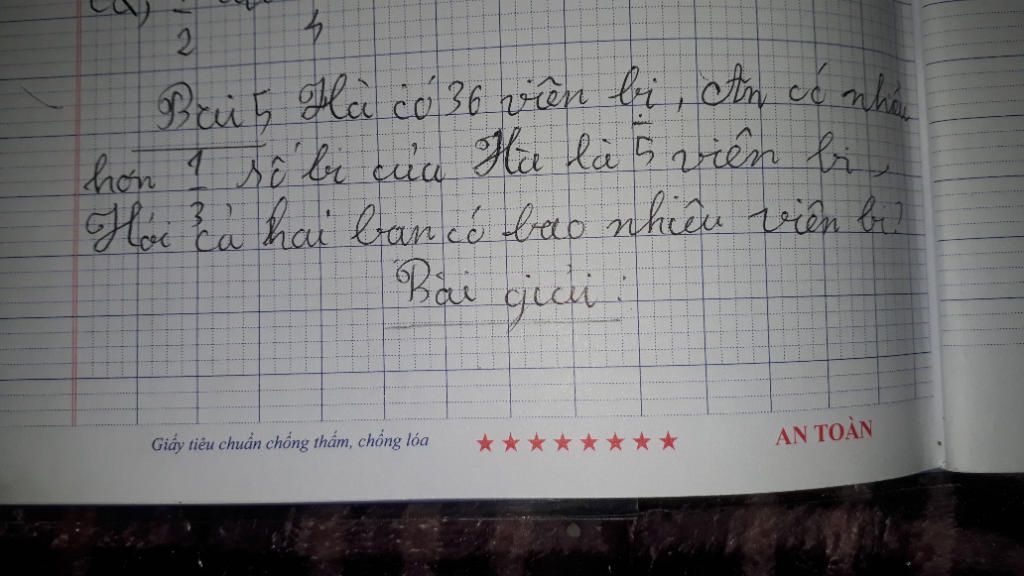 2 4
Bài 5 Hà có 36 viên bi, An có nhiều
hơn 1/3 số bi của Hà là 5 viên bi,
Hỏi cả hai bạn có bao nhiêu viên bi?
Bài giải:
Giấy tiêu chuẩn chống thấm, chống lóa ★★★★★★★★ AN TOÀN